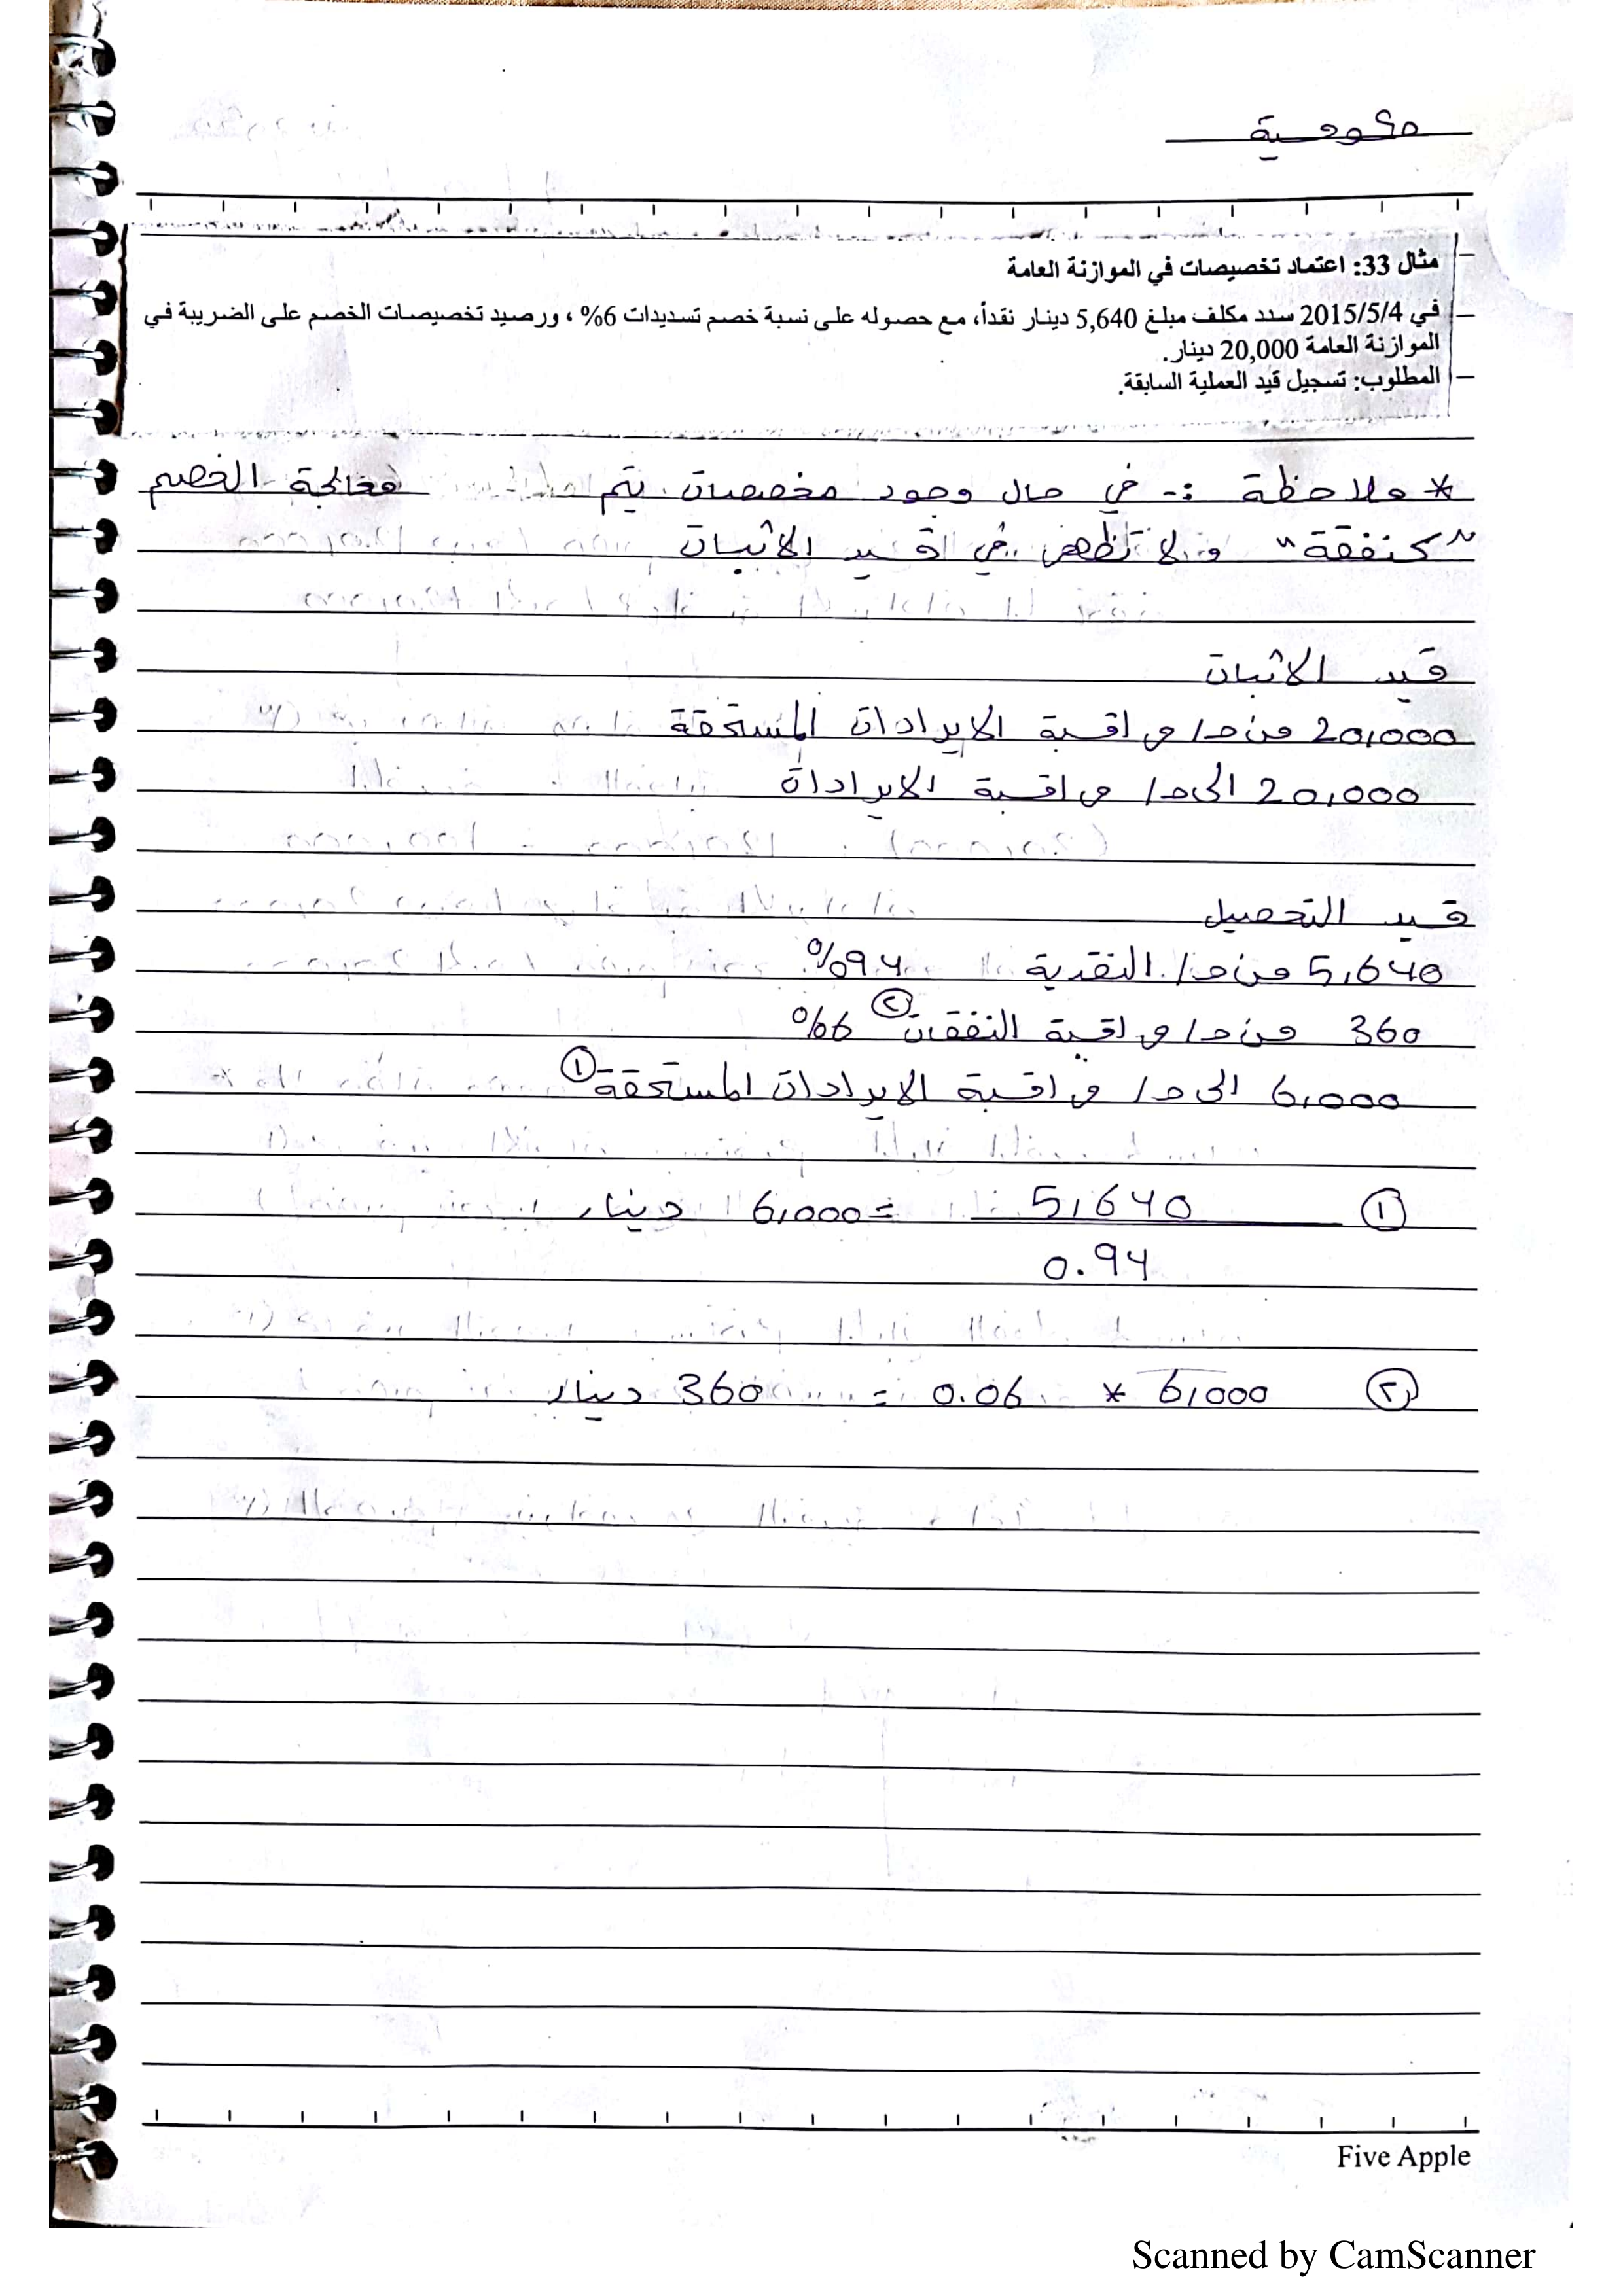 حكومية
مثال 33: اعتماد تخصيصات في الموازنة العامة
في 2015/5/4 سدد مكلف مبلغ 5,640 دينار نقداً، مع حصوله على نسبة خصم تسديدات 6% ، ورصيد تخصيصات الخصم على الضريبة في
الموازنة العامة 20,000 دينار.
المطلوب: تسجيل قيد العملية السابقة.
* ملاحظة :- في حال وجود مخصصات يتم معالجة الخصم
"كنفقة" ولا تظهر في قيد الاثبات
قيد الاثبات
20,000 من ح/ مراقبة الايرادات المستحقة
20,000 الى ح/ مراقبة الايرادات
قيد التحصيل
5,640 من ح/ النقدية 94%
360 من ح/ مراقبة النفقات ② 6%
6,000 الى ح/ مراقبة الايرادات المستحقة ①
① 5,640 = 6,000 دينار
0.94
② 6,000 * 0.06 = 360 دينار
Five Apple
Scanned by CamScanner